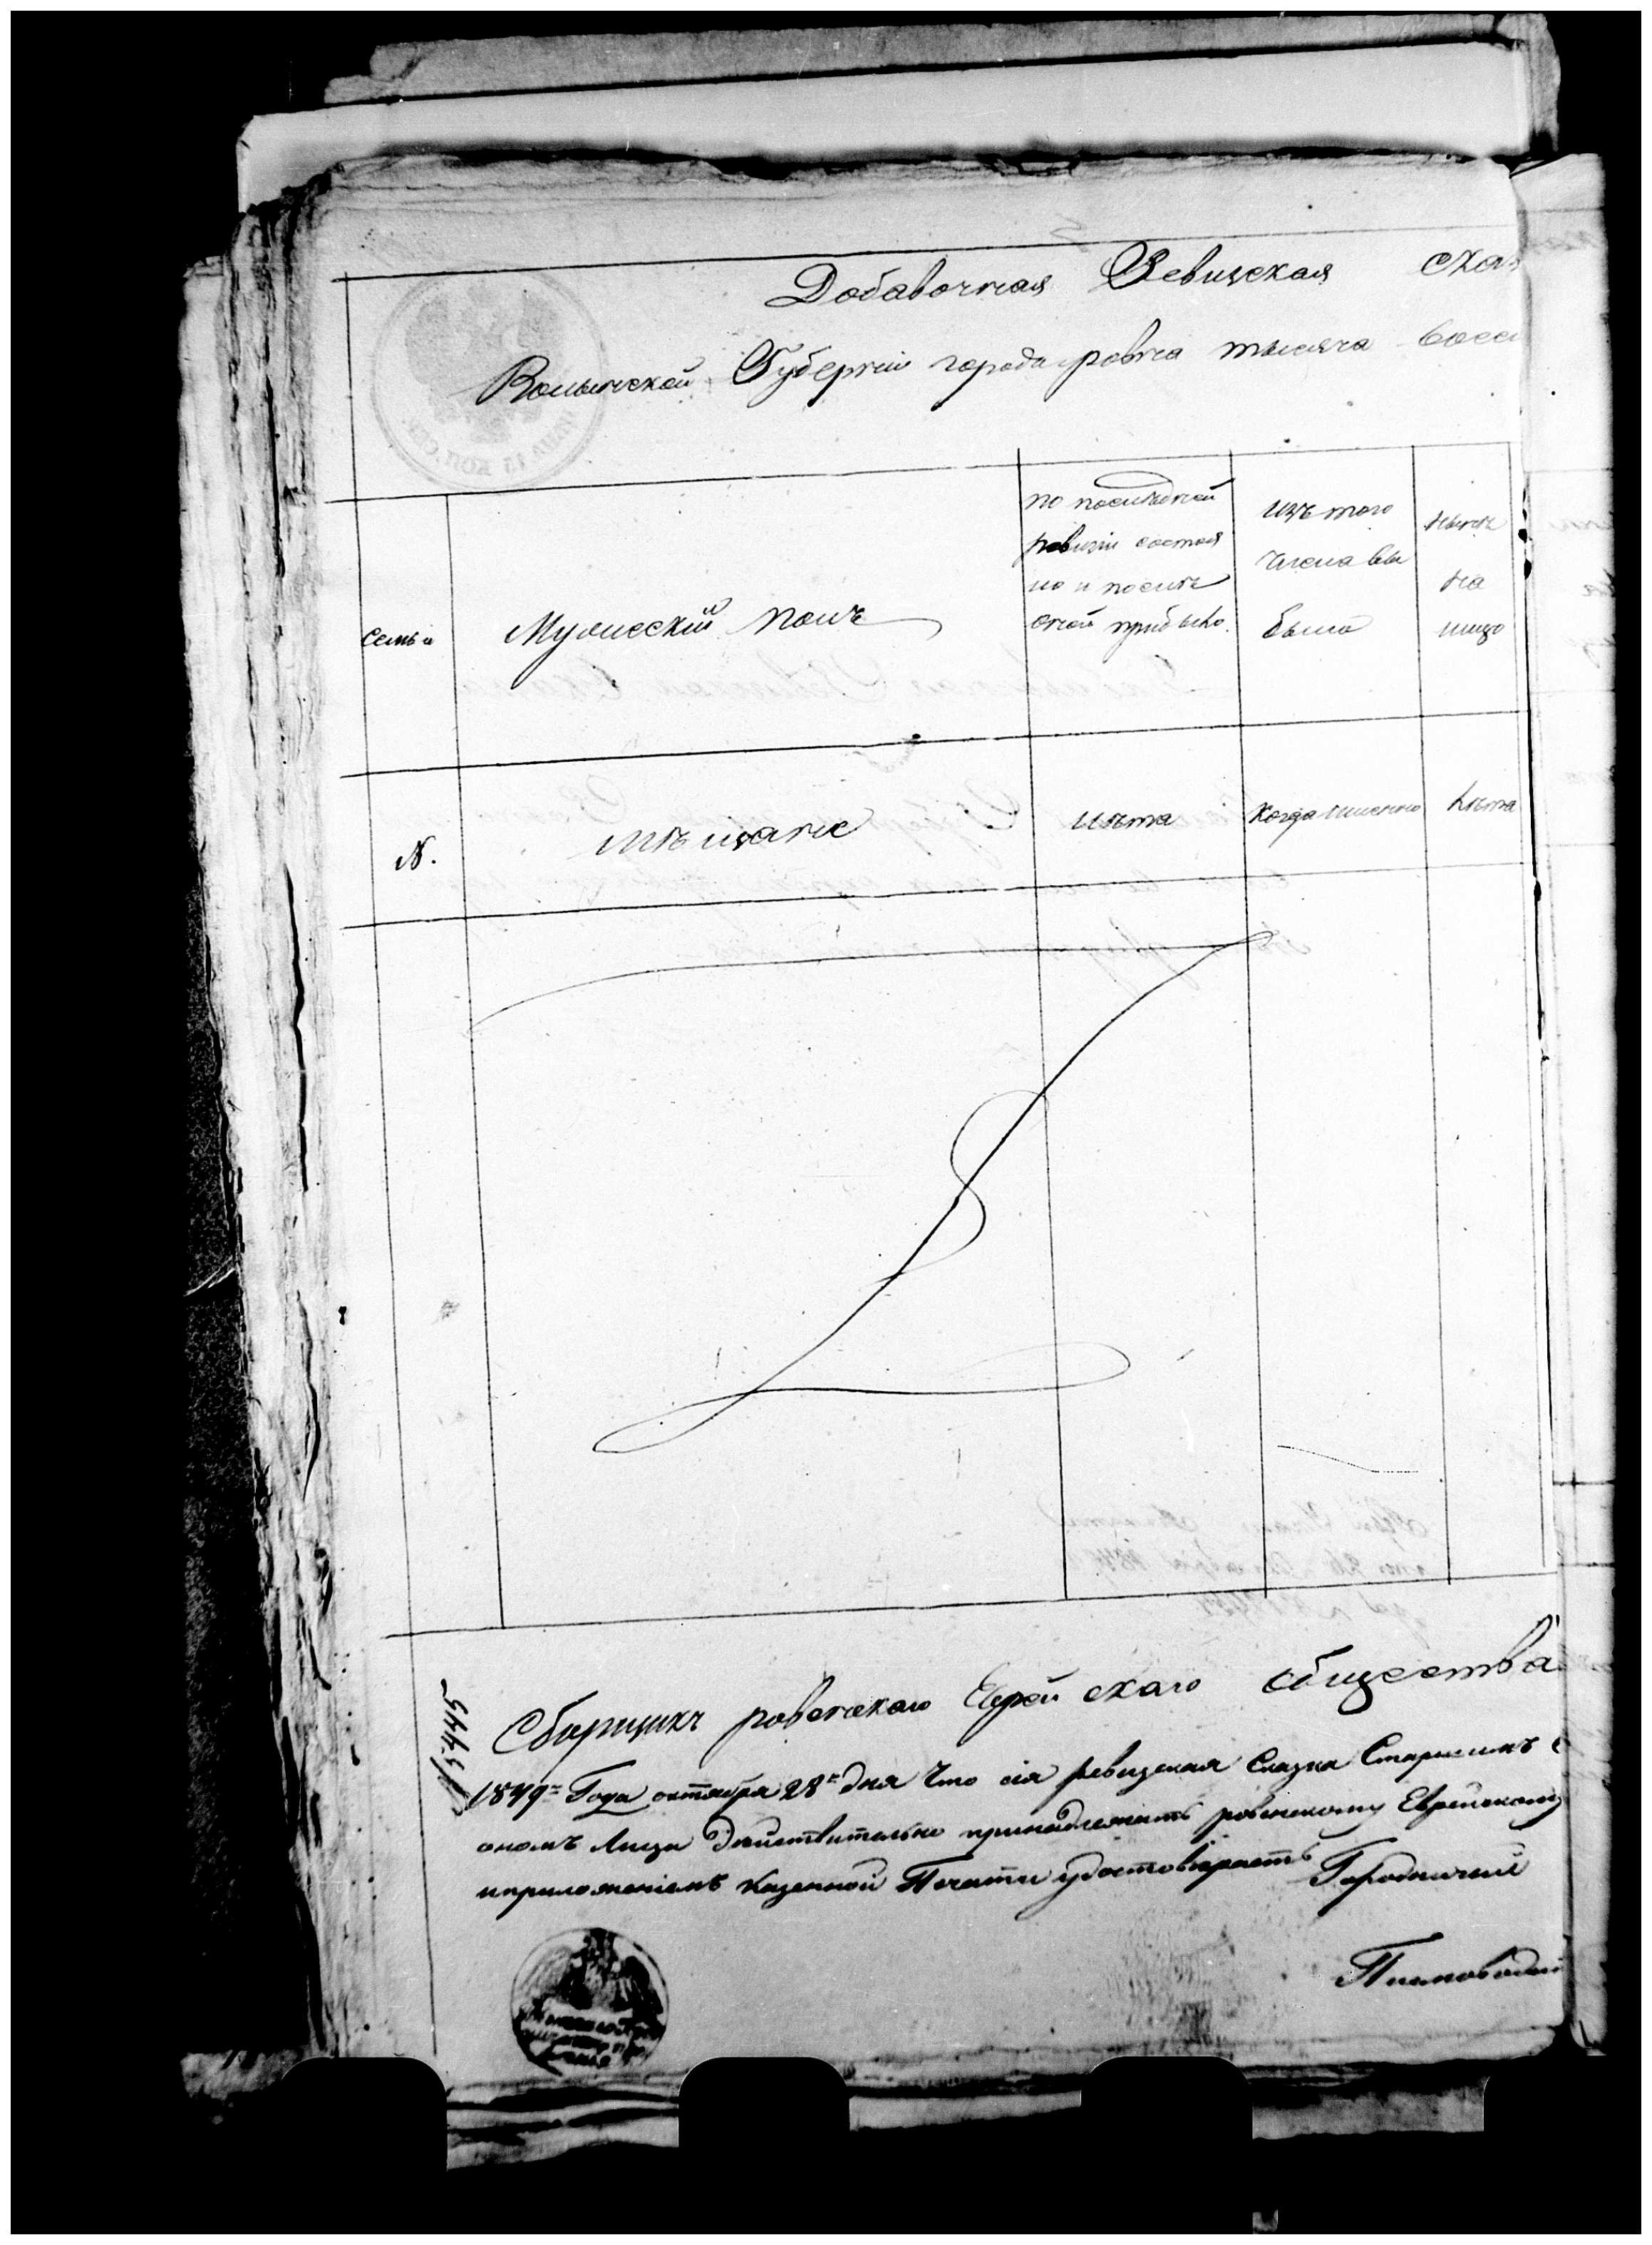 Добавочная Ревизская сказ
Волынской Губерніи города ровна тысяча восем
Семьи
Мужескій полъ
по последней
ревизіи состоя
ло и после
оной прибыло.
изъ того
числа вы
было
нынѣ
на
лицо
N.
мѣщане
лѣта
Когда именно
лѣта
Сборщикъ ровенскаго Еврейскаго общества
1849 Года октября 28 дня Что сія ревизская Сказка Старшимъ
ономъ Лица действительно принадлежатъ ровенскому Еврейскому
и приложеніемъ Казенной Печати удостоверяетъ Городничий
Письмоводи